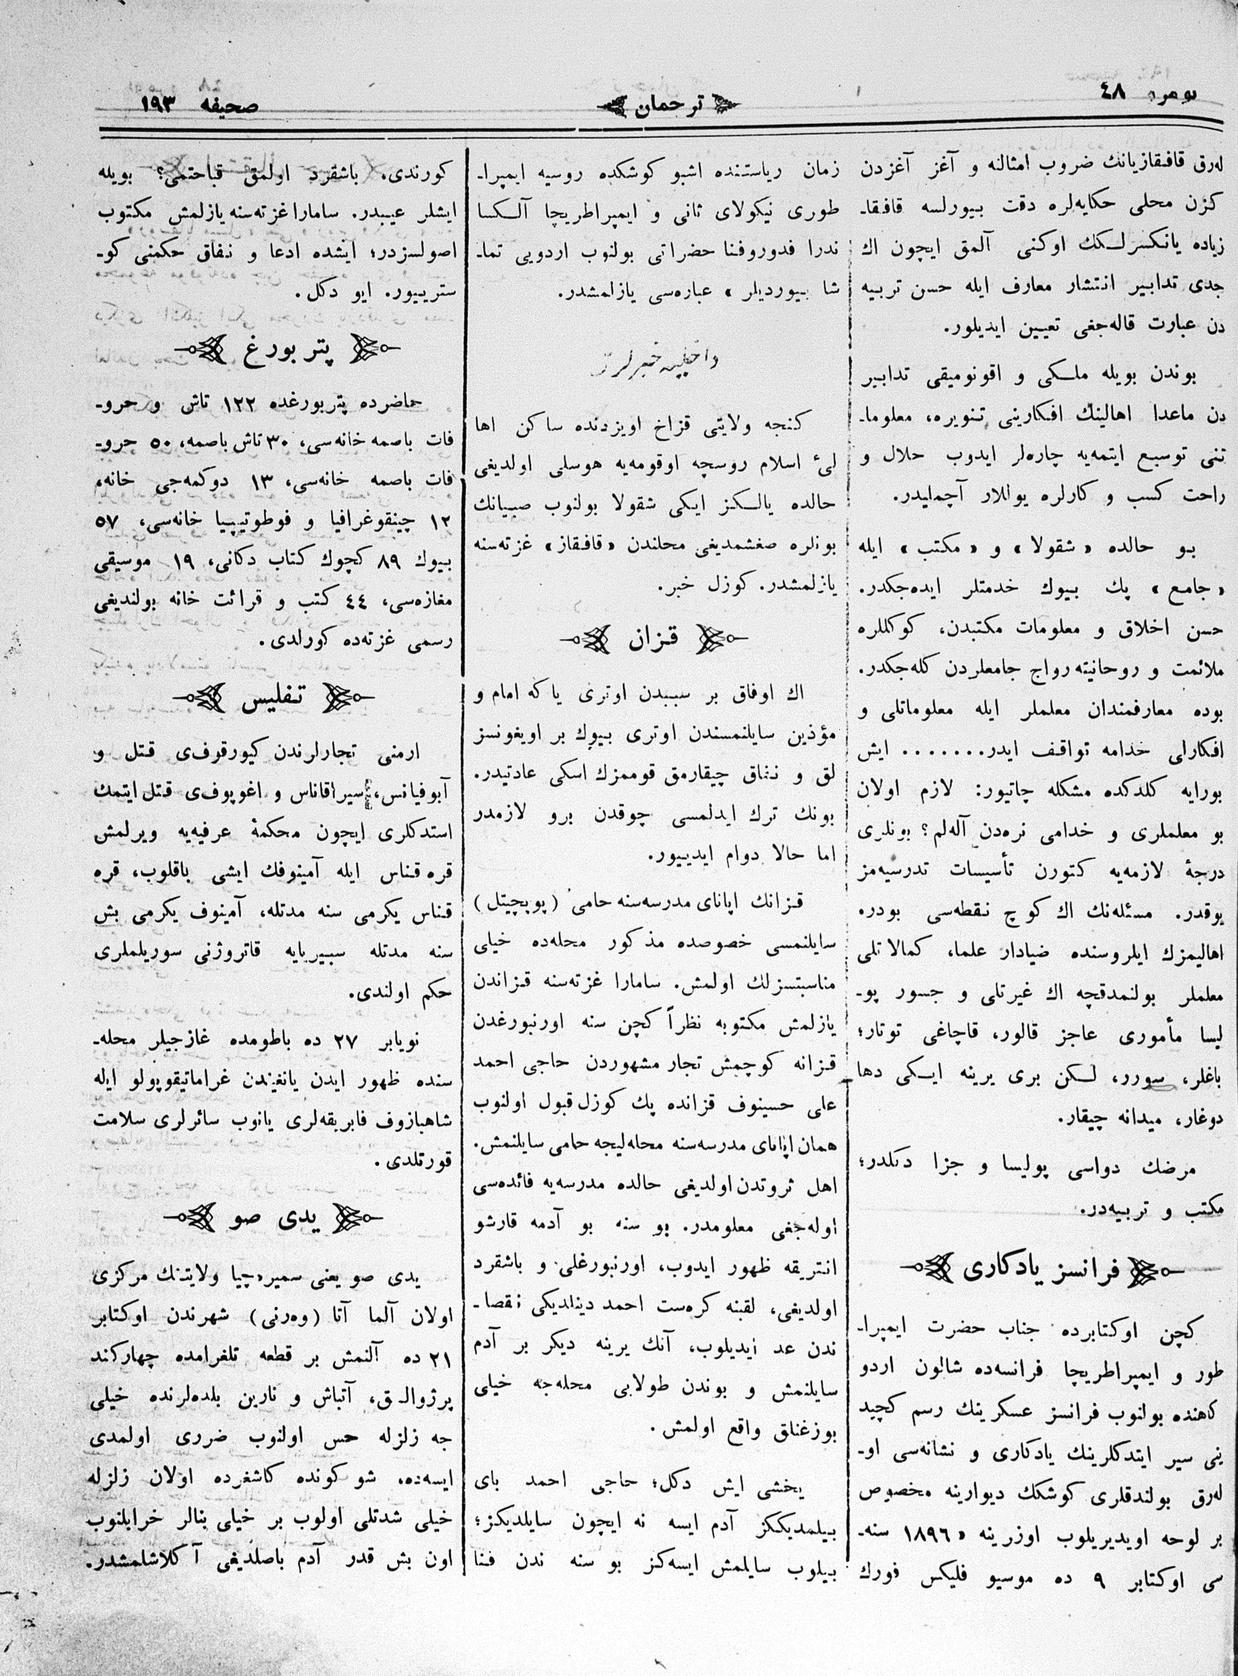 نومرو ٤٨
ترجمان
صحیفه ١٩٣
لەرق قافقازیانك ضروب امثالنه و آغز آغزدن
كزن محلی حكایه‌لره دقت بیورلسه قافقا۔
زیاده یانكسزلكك اوكنی آلمق ایچون اك
جدی تدابیر انتشار معارف ایله حسن تربیه
دن عبارت قاله‌جغی تعیین ایدیلور.
بوندن بویله ملكی و اقونومیقی تدابیر
دن ماعدا اهالینك افكارینی تنویره، معلوما۔
تنی توسیع ایتمه‌یه چاره‌لر ایدوب حلال و
راحت كسب و كارلره یوللار آچملیدر.
بو حالده «شقولا» و «مكتب» ایله
«جامع» پك بیوك خدمتلر ایده‌جكدر.
حسن اخلاق و معلومات مكتبدن، كوكللره
ملائمت و روحانیته رواج جامعلردن كله‌جكدر.
بوده معارفمندان معلملر ایله معلوماتلی و
افكارلی خدامه تواقف ایدر....... ایش
بورایه كلدكده مشكله چاتیور: لازم اولان
بو معلملری و خدامی نره‌دن آله‌لم؟ بونلری
درجهٔ لازمه‌یه كتورن تأسیسات تدرسیه‌مز
یوقدر. مسئله‌نك اك كوچ نقطه‌سی بودر.
اهالیمزك ایلروسنده ضیادار علما، كمالاتلی
معلملر بولنمدقچه اك غیرتلی و جسور پو۔
لیسا مأموری عاجز قالور، قاچاغی توتار؛
باغلر، سورر، لكن بری یرینه ایكی دها
دوغار، میدانه چیقار.
مرضك دواسی پولیسا و جزا دكلدر؛
مكتب و تربیه‌در.
فرانسز یادكاری
كچن اوكتابرده جناب حضرت ایمپرا۔
طور و ایمپراطریچا فرانسه‌ده شالون اردو
كاهنده بولنوب فرانسز عسكرینك رسم كچید
ینی سیر ایتدكلرینك یادكاری و نشانه‌سی او۔
لەرق بولندقلری كوشكك دیوارینه مخصوص
بر لوحه اویدیریلوب اوزرینه «١٨٩٦ سنه۔
سی اوكتابر ٩ ده موسیو فلیكس فورك
زمان ریاستنده اشبو كوشكده روسیه ایمپرا۔
طوری نیكولای ثانی و ایمپراطریچا آلكسا
ندرا فدوروفنا حضراتی بولنوب اردویی تما۔
شا بیوردیلر» عباره‌سی یازلمشدر.
داخلیه خبرلری
كنجه ولایتی قزاخ اویزدنده ساكن اها
لیٔ اسلام روسچه اوقومه‌یه هوسلی اولدیغی
حالده یالكز ایكی شقولا بولنوب صبیانك
بونلره صغشمدیغی محلندن «قافقاز» غزته‌سنه
یازلمشدر. كوزل خبر.
قزان
اك اوفاق بر سببدن اوتری یا كه امام و
مؤذین سایلنمسندن اوتری بیوك بر اویغونسز
لق و نفاق چیقارمق قوممزك اسكی عادتیدر.
بونك ترك ایدلمسی چوقدن برو لازمدر
اما حالا دوام ایدییور.
قزانك اپانای مدرسه‌سنه حامی (پوپچیتل)
سایلنمسی خصوصده مذكور محله‌ده خیلی
مناسبتسزلك اولمش. سامارا غزته‌سنه قزاندن
یازلمش مكتوبه نظراً كچن سنه اورنبورغدن
قزانه كوچمش تجار مشهوردن حاجی احمد
علی حسینوف قزانده پك كوزل قبول اولنوب
همان اپانای مدرسه‌سنه محله‌لیجه حامی سایلنمش.
اهل ثروتدن اولدیغی حالده مدرسه‌یه فائده‌سی
اوله‌جغی معلومدر. بو سنه بو آدمه قارشو
انتریقه ظهور ایدوب، اورنبورغلی و باشقرد
اولدیغی، لقبنه كره‌ست احمد دینلدیكی نقصا۔
ندن عد ایدیلوب، آنك یرینه دیكر بر آدم
سایلنمش و بوندن طولایی محله‌جه خیلی
بوزغنلق واقع اولمش.
یخشی ایش دكل؛ حاجی احمد بای
بیلمدیككز آدم ایسه نه ایچون سایلدیكز؛
بیلوب سایلمش ایسه‌كز بو سنه ندن فنا
كورندی. باشقرد اولمق قباحتمی؟ بویله
ایشلر عیبدر. سامارا غزته‌سنه یازلمش مكتوب
اصولسزدر؛ ایشده ادعا و نفاق حكمنی كو۔
سترییور. ایو دكل.
پتربورغ
حاضرده پتربورغده ١٢٢ تاش و حرو۔
فات باصمه خانه‌سی، ٣٠ تاش باصمه، ٥٠ حرو۔
فات باصمه خانه‌سی، ١٣ دوكمه‌جی خانه،
١٢ چینقوغرافیا و فوطوتیپیا خانه‌سی، ٥٧
بیوك ٨٩ كچوك كتاب دكانی، ١٩ موسیقی
مغازه‌سی، ٤٤ كتب و قرائت خانه بولندیغی
رسمی غزته‌ده كورلدی.
تفلیس
ارمنی تجارلرندن كیورقوفی قتل و
آبوفیانس، سیراقاناس و اغوپوفی قتل ایتمك
استدكلری ایچون محكمهٔ عرفیه‌یه ویرلمش
قره قناس ایله آمینوفك ایشی باقلوب، قره
قناس یكرمی سنه مدتله، آمینوف یكرمی بش
سنه مدتله سیبریایه قاتروژنی سوریلملری
حكم اولندی.
نویابر ٢٧ ده باطومده غازجیلر محله۔
سنده ظهور ایدن یانغیندن غراماتیقوپولو ایله
شاهبازوف فابریقه‌لری یانوب سائرلری سلامت
قورتلدی.
یدی صو
یدی صو یعنی سمیره‌چیا ولایتنك مركزی
اولان آلما آتا (وه‌رنی) شهرندن اوكتابر
٢١ ده آلنمش بر قطعه تلغرامده چهاركند
پرژوالق، آتباش و نارین بلده‌لرنده خیلی
جه زلزله حس اولنوب ضرری اولمدی
ایسه‌ده، شو كونده كاشغرده اولان زلزله
خیلی شدتلی اولوب بر خیلی بنالر خرابلنوب
اون بش قدر آدم باصلدیغی آكلاشلمشدر.